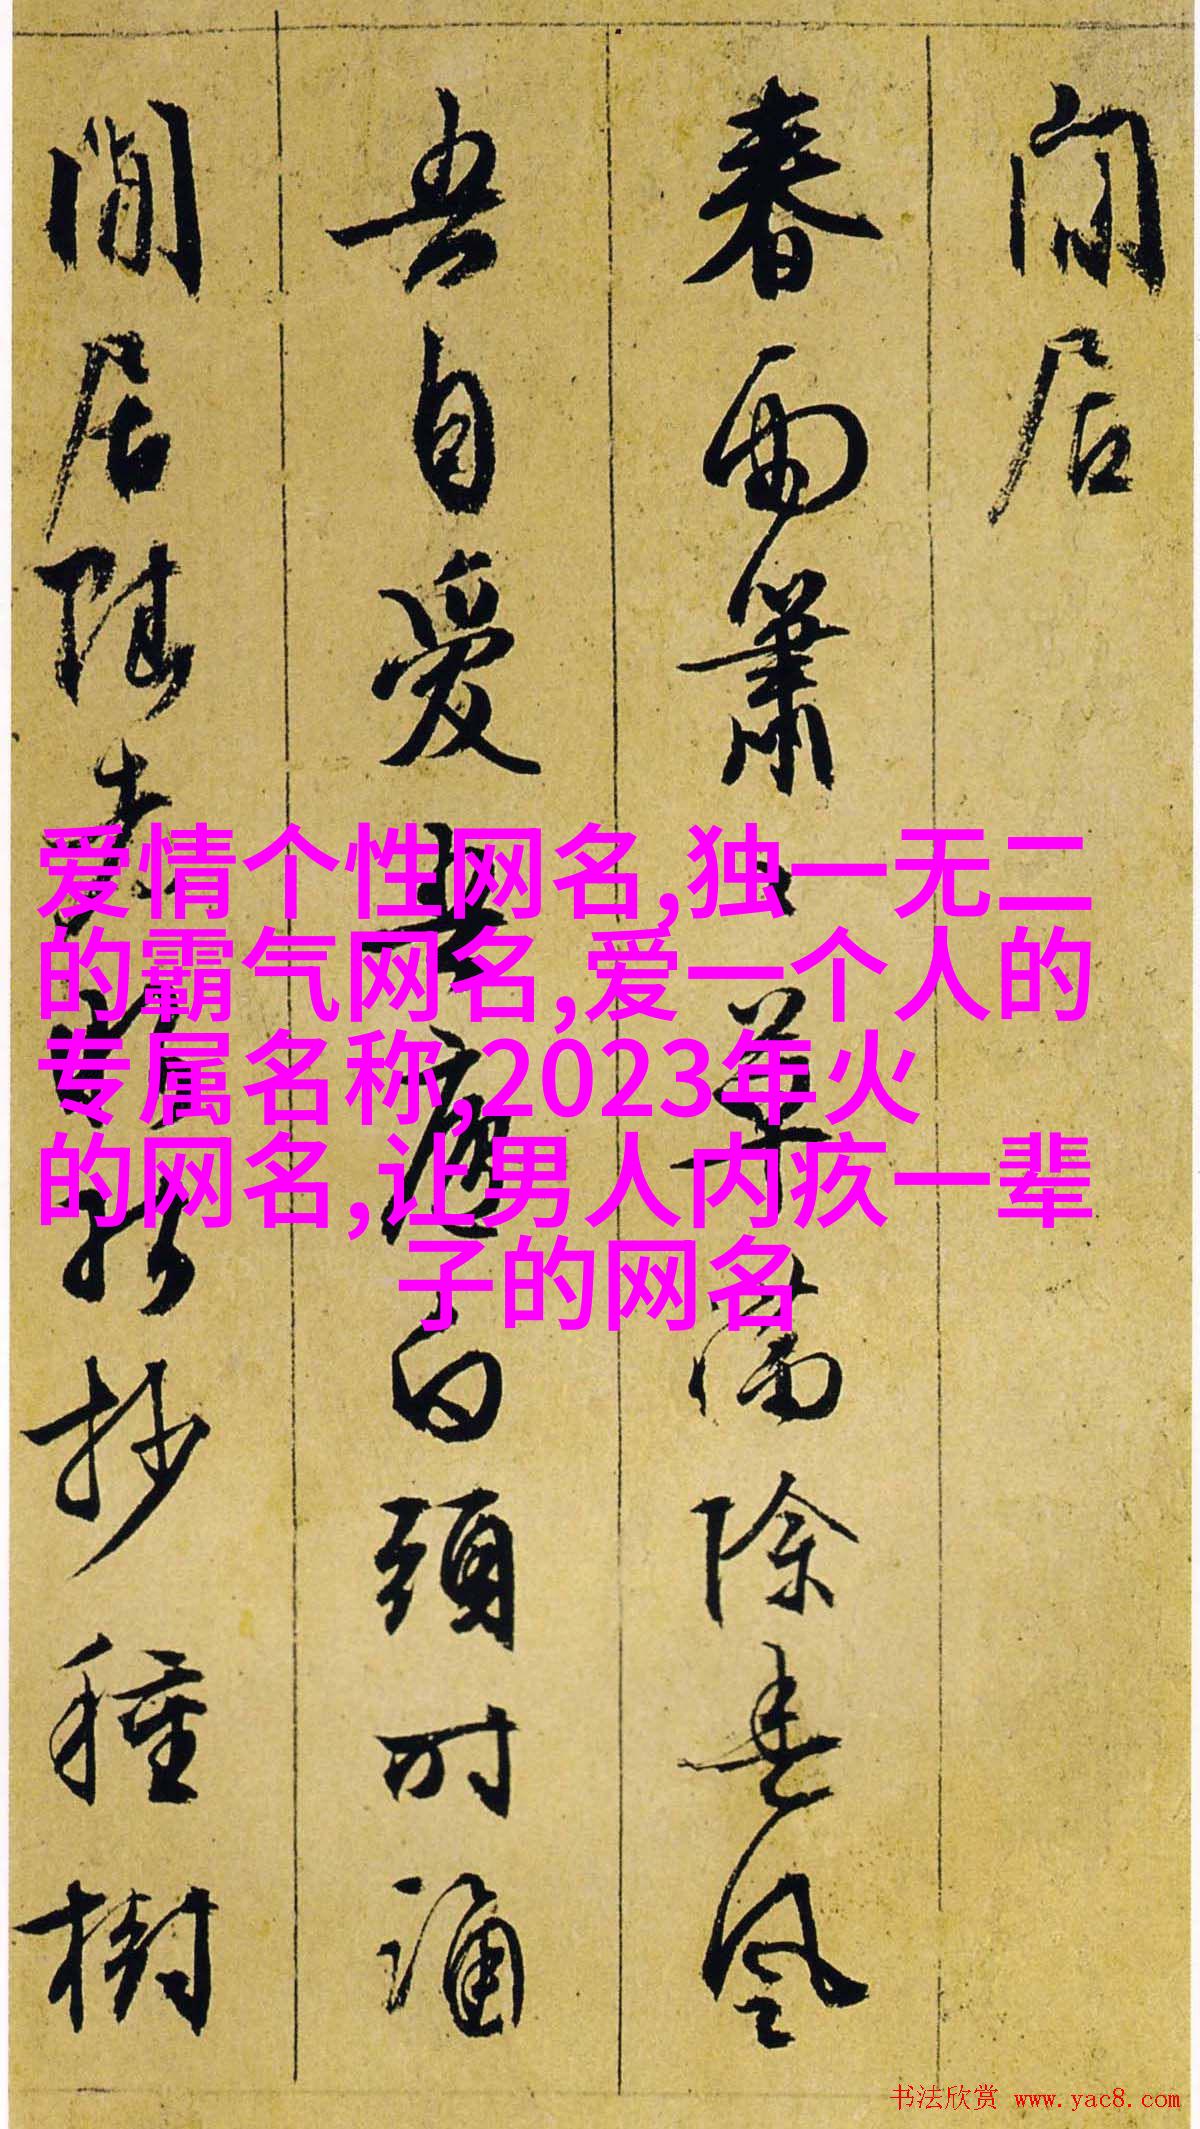 閒居
春雨蕭草滿除春風
吾自愛吾廬白頭時誦
閒居抄種樹
爱情个性网名,独一无二
的霸气网名,爱一个人的
专属名称,2023年火
的网名,让男人内疚一辈
子的网名
书法欣赏 www.yac8.com